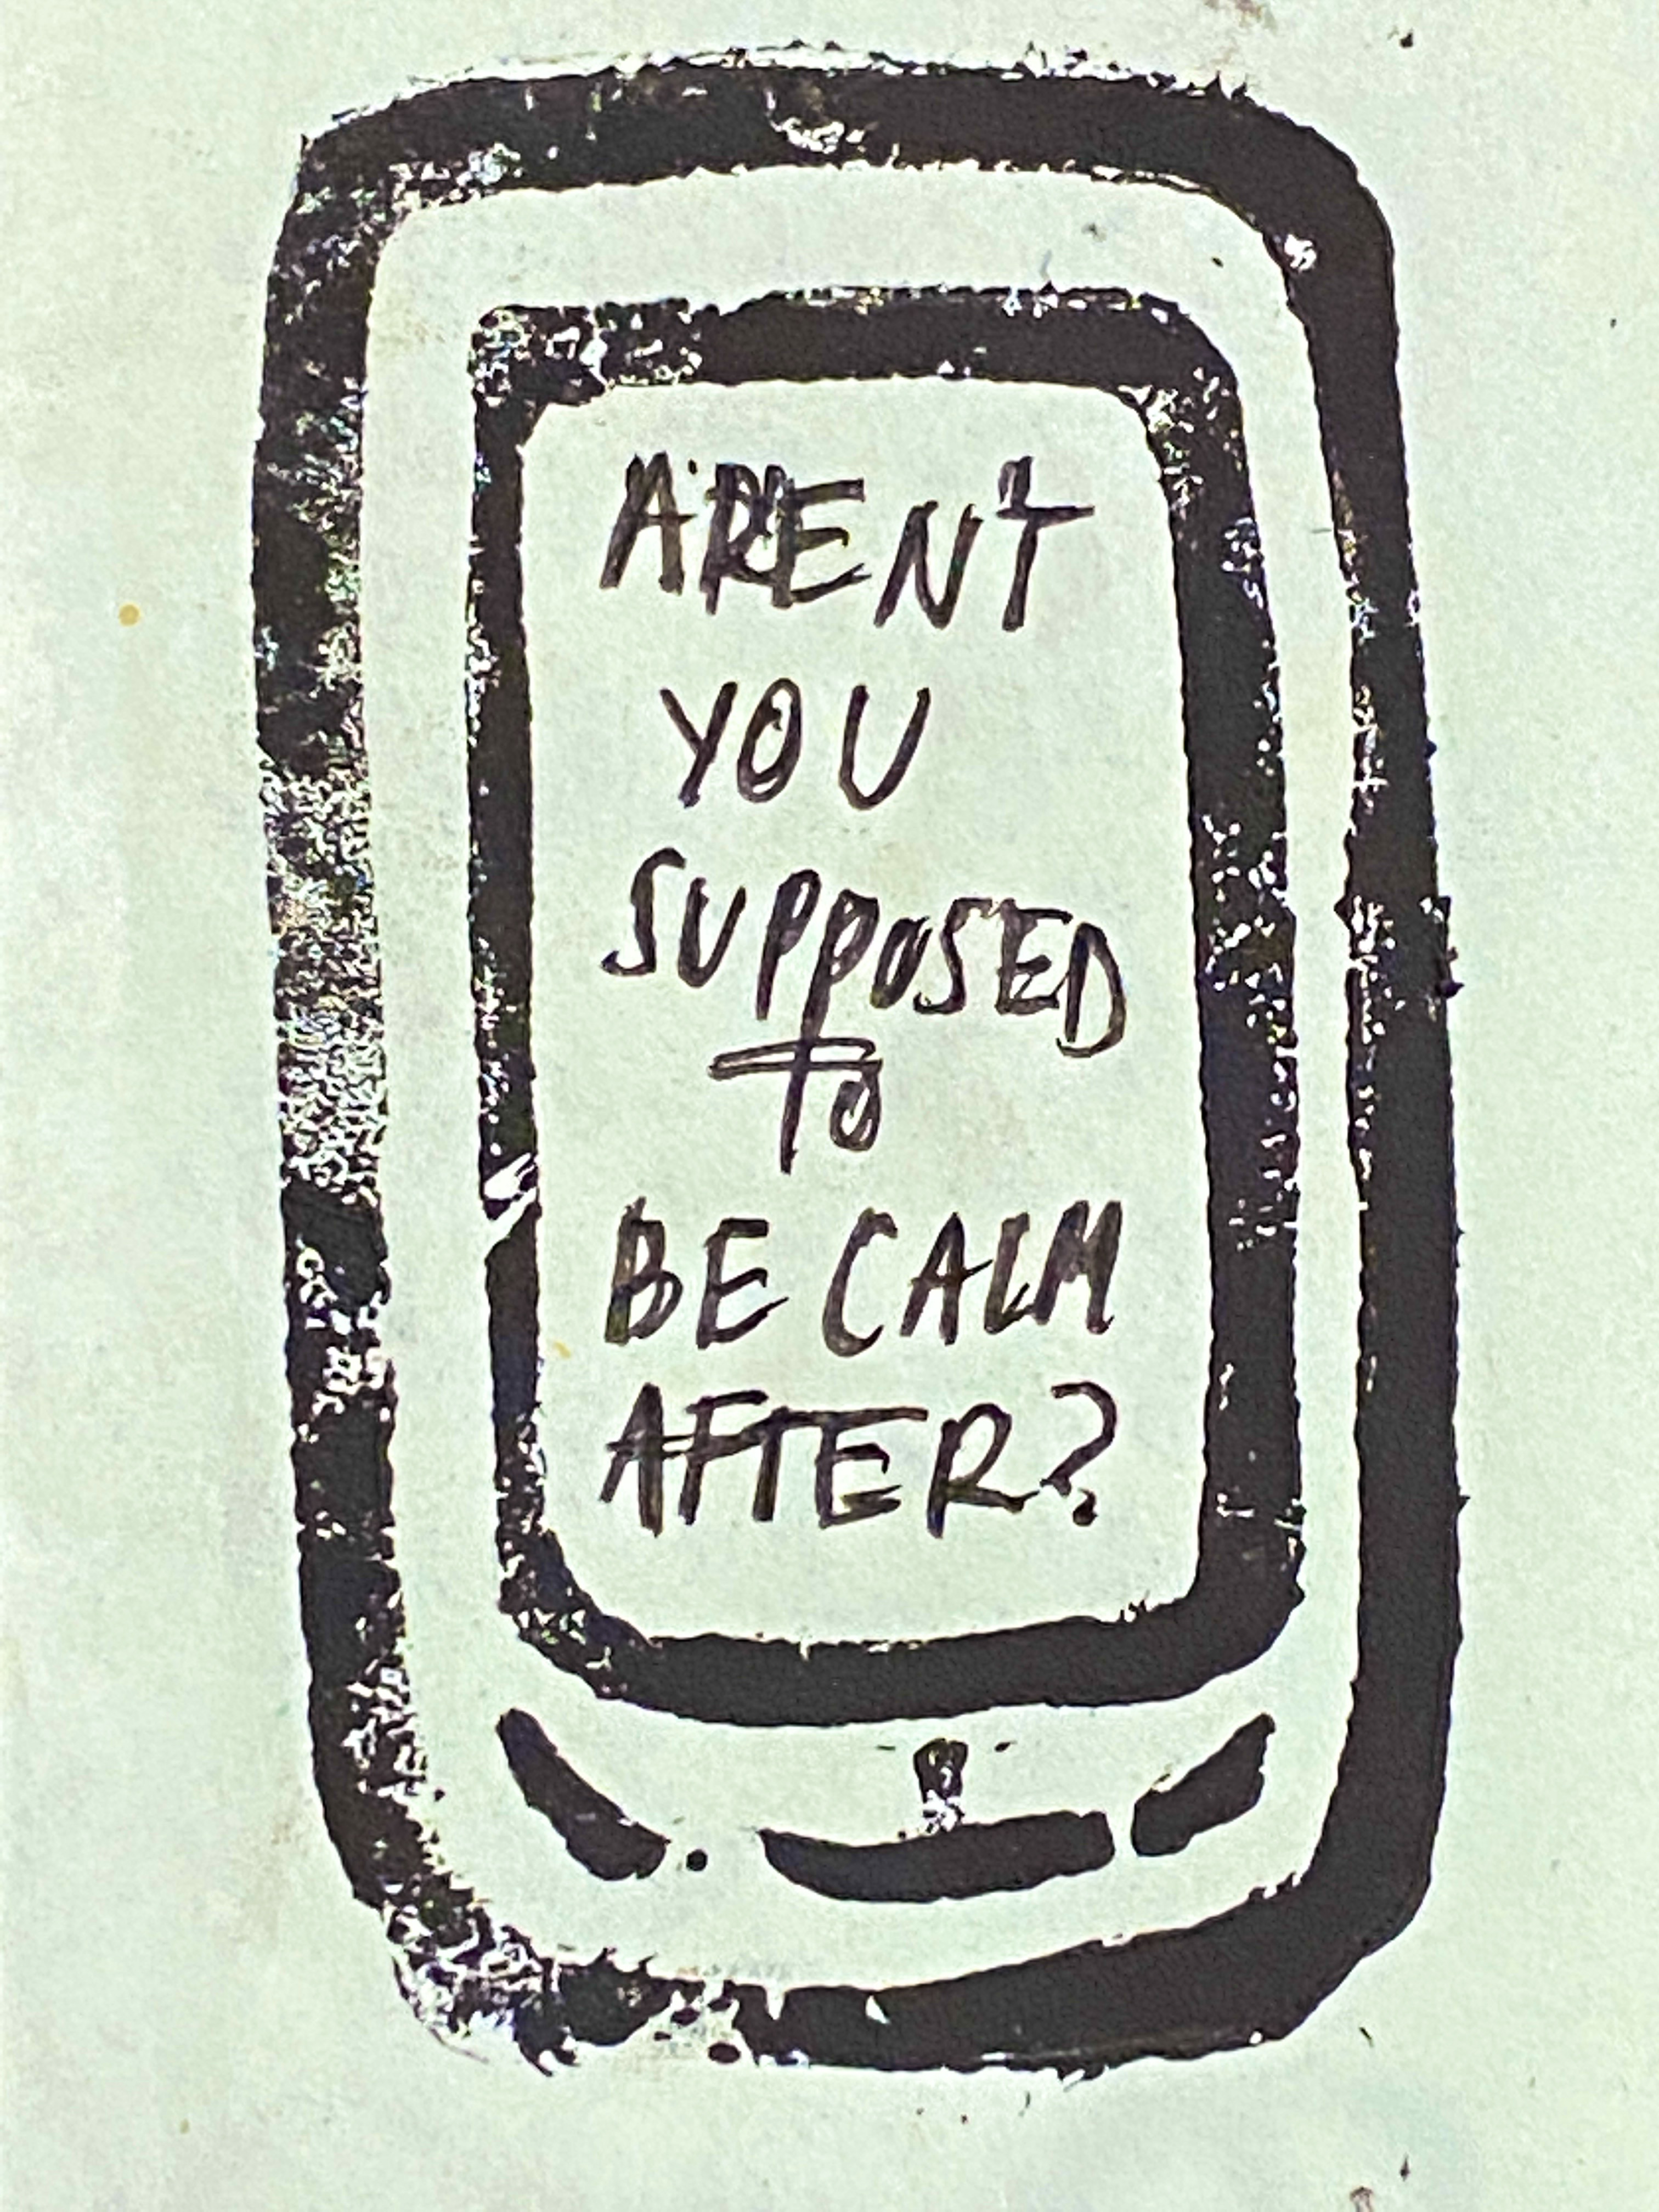 ARENT
YOU
SUPPOSED
TO
BE CALM
AFTER?